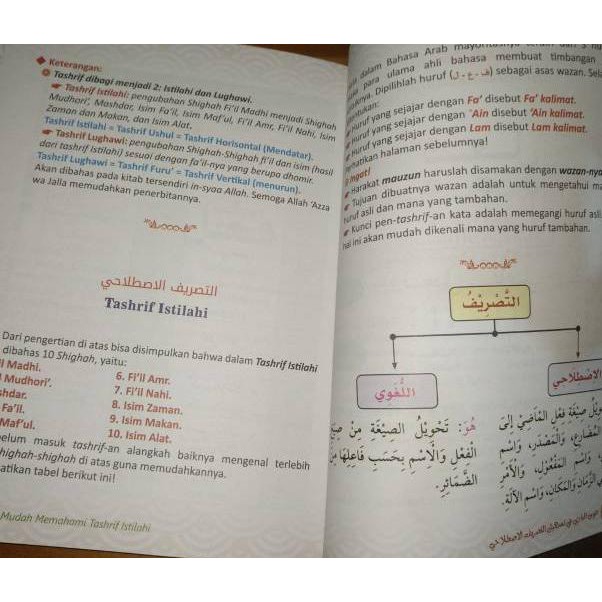 Keterangan:
Tashrif dibagi menjadi 2: Istilahi dan Lughawi.
Tashrif Istilahi: pengubahan Shighah Fi'il Madhi menjadi Shighah
Mudhori', Mashdar, Isim Fa'il, Isim Maf'ul, Fi'il Amr, Fi'il Nahi, Isim
Zaman dan Makan, dan Isim Alat.
Tashrif Istilahi = Tashrif Ushul = Tashrif Horisontal (Mendatar).
Tashrif Lughawi: pengubahan Shighah-Shighah fi'il dan isim (hasil
dari tashrif istilahi) sesuai dengan fa'il-nya yang berupa dhomir.
Tashrif Lughawi = Tashrif Furu' = Tashrif Vertikal (menurun).
Akan dibahas pada kitab tersendiri in-syaa Allah. Semoga Allah 'Azza
wa Jalla memudahkan penerbitannya.
التصريف الاصطلاحي
Tashrif Istilahi
Dari pengertian di atas bisa disimpulkan bahwa dalam Tashrif Istilahi
dibahas 10 Shighah, yaitu:
Madhi.
Mudhori'.
6. Fi'il Amr.
7. Fi'il Nahi.
Fa'il.
8. Isim Zaman.
Maf'ul.
9. Isim Makan.
10. Isim Alat.
masuk tashrif-an alangkah baiknya mengenal terlebih
shighah di atas guna memudahkannya.
tabel berikut ini!
Mudah Memahami Tashrif Istilahi
dalam Bahasa Arab
para ulama ahli bahasa membuat timbangan
Dipilihlah huruf (ف - ع - ل) sebagai asas wazan.
Huruf yang sejajar dengan Fa' disebut Fa' kalimat.
Huruf yang sejajar dengan 'Ain disebut 'Ain kalimat.
Huruf yang sejajar dengan Lam disebut Lam kalimat.
halaman sebelumnya!
Ingat!
Harakat mauzun haruslah disamakan dengan wazan-nya
Tujuan dibuatnya wazan adalah untuk mengetahui
huruf asli dan mana yang tambahan.
Kunci pen-tashrif-an kata adalah memegangi huruf asli
hal ini akan mudah dikenali mana yang huruf tambahan.
التَّصْرِيْفُ
الاصْطِلَاحِي
اللُّغَوِي
هُوَ: تَحْوِيْلُ الصِّيْغَةِ مِنْ
الْفِعْلِ وَالِاسْمِ بِحَسَبِ فَاعِلِهَا مِنَ
الضَّمَائِرِ.
صِيْغَةِ فِعْلِ الْمَاضِي إِلَى
الْمُضَارِعِ، وَالْمَصْدَرِ، وَاسْمِ
وَاسْمِ الْمَفْعُوْلِ، وَالْأَمْرِ
الزَّمَانِ وَالْمَكَانِ، وَاسْمِ الْآلَةِ.